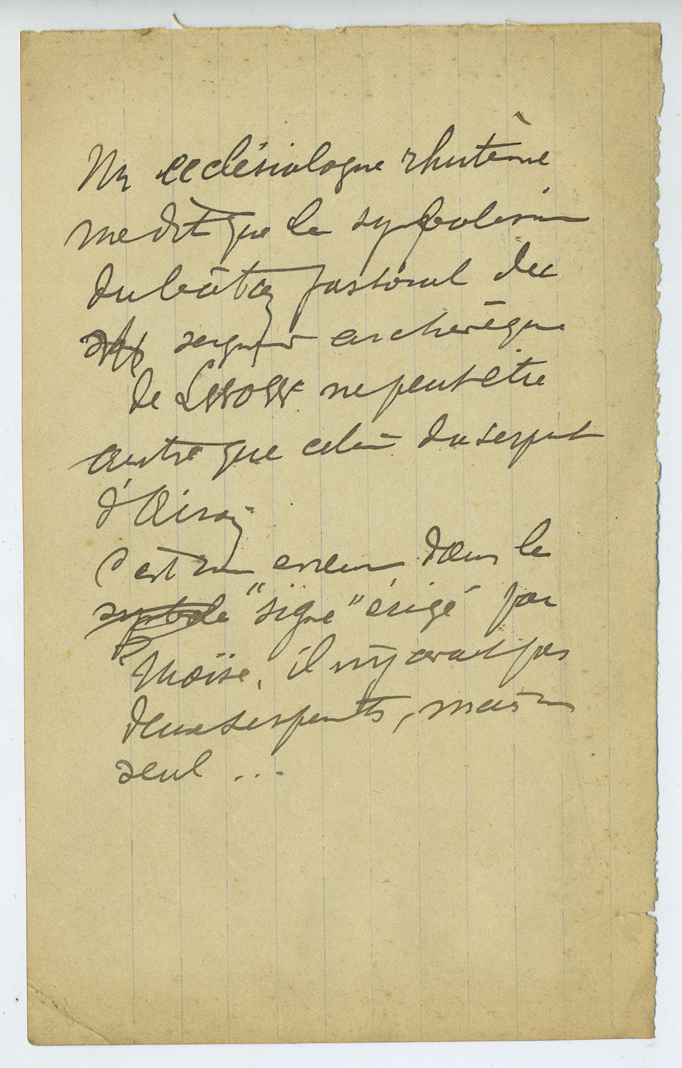 Un ecclésiologue rhutène
me dit que le symbolisme
du bâton pastoral du
seigneur archevêque
de Lwow ne peut être
autre que celui du serpent
d'Airain
C'est une erreur dans le
symbole "signe" érigé par
Moïse, il n'y avait pas
deux serpents, mais un
seul ...